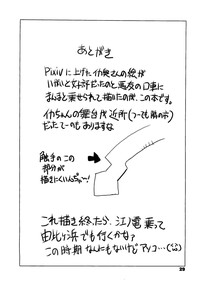 あとがき
Pixivに上げたイカ娘さんの絵が
いがいと好評だったのと悪友の口車に
まんまと乗せられて描いたのが、この本です。
イカちゃんの舞台が近所（つーても隣の市）
だったてーのもありますな
触手のこの
部分が
描きにくいんじゃー!
これ描き終ったら、江ノ電乗って
由比ヶ浜でも行くかな?
この時期なんにもないけどアソコ…
29